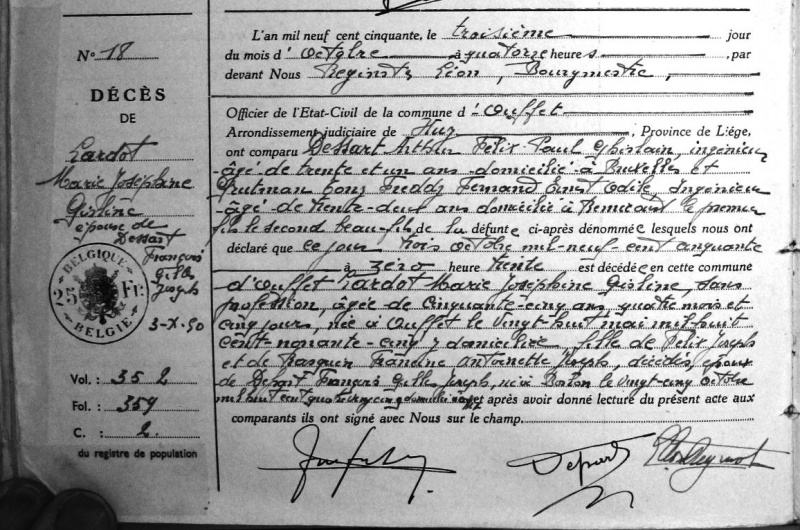 N° 18
DÉCÈS
DE
Lardot
Marie Joséphine
Gisline
épouse de
Dessart
François
Gilles
Joseph
BELGIQUE
25 Fr.
BELGIE
3-X-50
Vol. : 352
Fol. : 359
C. : 2
du registre de population
L'an mil neuf cent cinquante, le troisième jour
du mois d'octobre à quatorze heures, par
devant Nous Léon, Bourgmestre,
Officier de l'Etat-Civil de la commune d'Ouffet
Arrondissement judiciaire de Huy, Province de Liége,
ont comparu Dessart Arthur Félix Paul Ghislain, ingénieur
âgé de trente et un ans domicilié à Bruxelles et
Freddy Fernand Ernest Odile Ingénieur
âgé de trente-deux ans domicilié à le premier
fils le second beau-fils de la défunte ci-après dénommée lesquels nous ont
déclaré que ce jour trois octobre mil-neuf cent cinquante
à zéro heure trente est décédée en cette commune
d'Ouffet Lardot Marie Joséphine Gisline, sans
profession, âgée de Cinquante-cinq ans, quatre mois et
cinq jours, née à Ouffet le vingt-huit mai mil huit
cent-nonante-cinq y domiciliée, fille de Félix Joseph
et de Francine Antoinette Joseph, décédés, épouse
de Dessart François Gilles Joseph, né à le vingt-cinq octobre
mil huit cent quatre vingt cinq domicilié et après avoir donné lecture du présent acte aux
comparants ils ont signé avec Nous sur le champ.